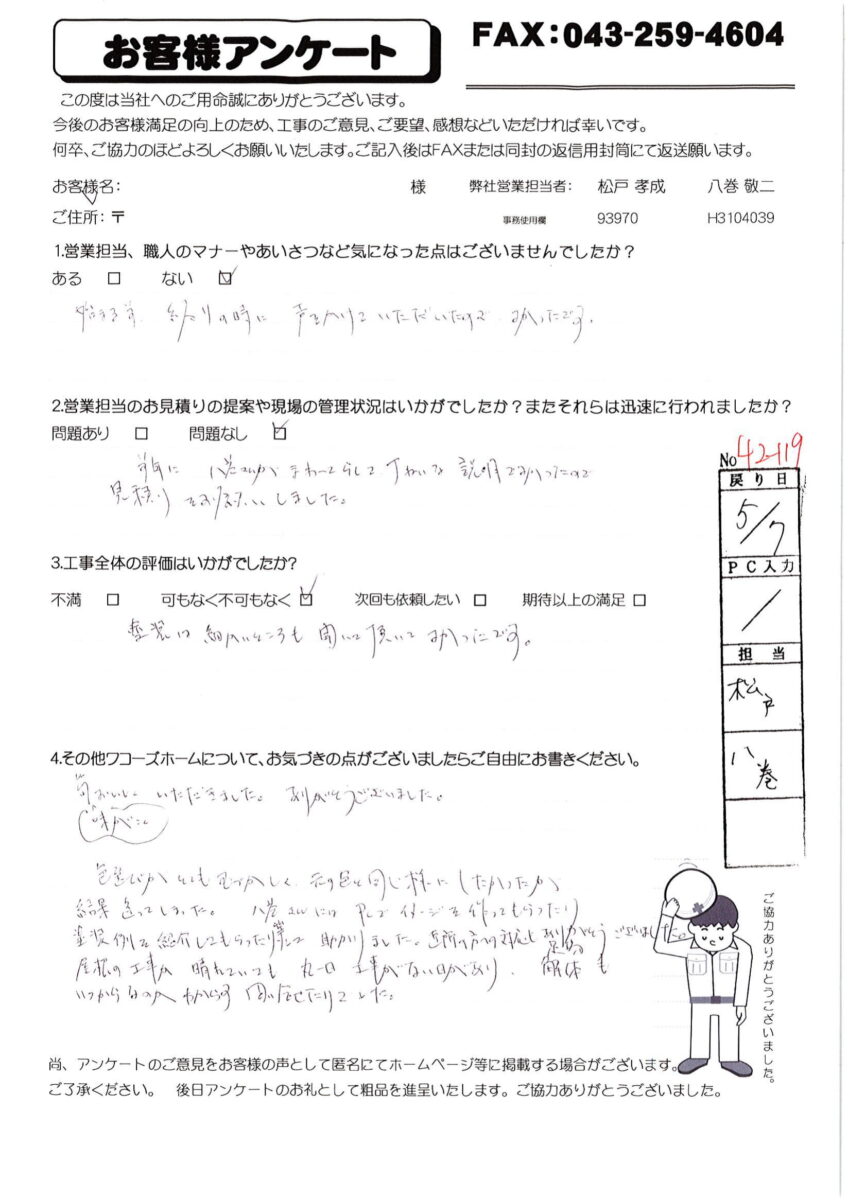 お客様アンケート
FAX:043-259-4604
この度は当社へのご用命誠にありがとうございます。
今後のお客様満足の向上のため、工事のご意見、ご要望、感想などいただければ幸いです。
何卒、ご協力のほどよろしくお願いいたします。ご記入後はFAXまたは同封の返信用封筒にて返送願います。
お客様名: 様 弊社営業担当者: 松戸 孝成 八巻 敬二
ご住所:〒 事務使用欄 93970 H3104039
1.営業担当、職人のマナーやあいさつなど気になった点はございませんでしたか?
ある □ ない ☑
始まる前 終わりの時に 声をかけていただいたので よかったです。
2.営業担当のお見積りの提案や現場の管理状況はいかがでしたか?またそれらは迅速に行われましたか?
問題あり □ 問題なし ☑
八巻さんが まわってらして ていねいな 説明でよかったので
見積りをお願いしました。
No 42-119
戻り日
5/7
PC入力
/
担当
松戸
八巻
3.工事全体の評価はいかがでしたか?
不満 □ 可もなく不可もなく ☑ 次回も依頼したい □ 期待以上の満足 □
塗装は 細かいところも 聞いて頂いて よかったです。
4.その他ワコーズホームについて、お気づきの点がございましたらご自由にお書きください。
いただきました。ありがとうございました。
色選びが とても むずかしく 元の色と同じ様に したかったが
結果 違ってしまった。 八巻さんには PCでイメージを作ってもらったり
塗装例を紹介してもらったり 助かりました。 ありがとうございました。
屋根の工事が 晴れていても 丸一日 工事がない日があり、 解体も
いつからなのか わからず 問い合せたりしました。
ご協力ありがとうございました。
尚、アンケートのご意見をお客様の声として匿名にてホームページ等に掲載する場合がございます。
ご了承ください。 後日アンケートのお礼として粗品を進呈いたします。ご協力ありがとうございました。